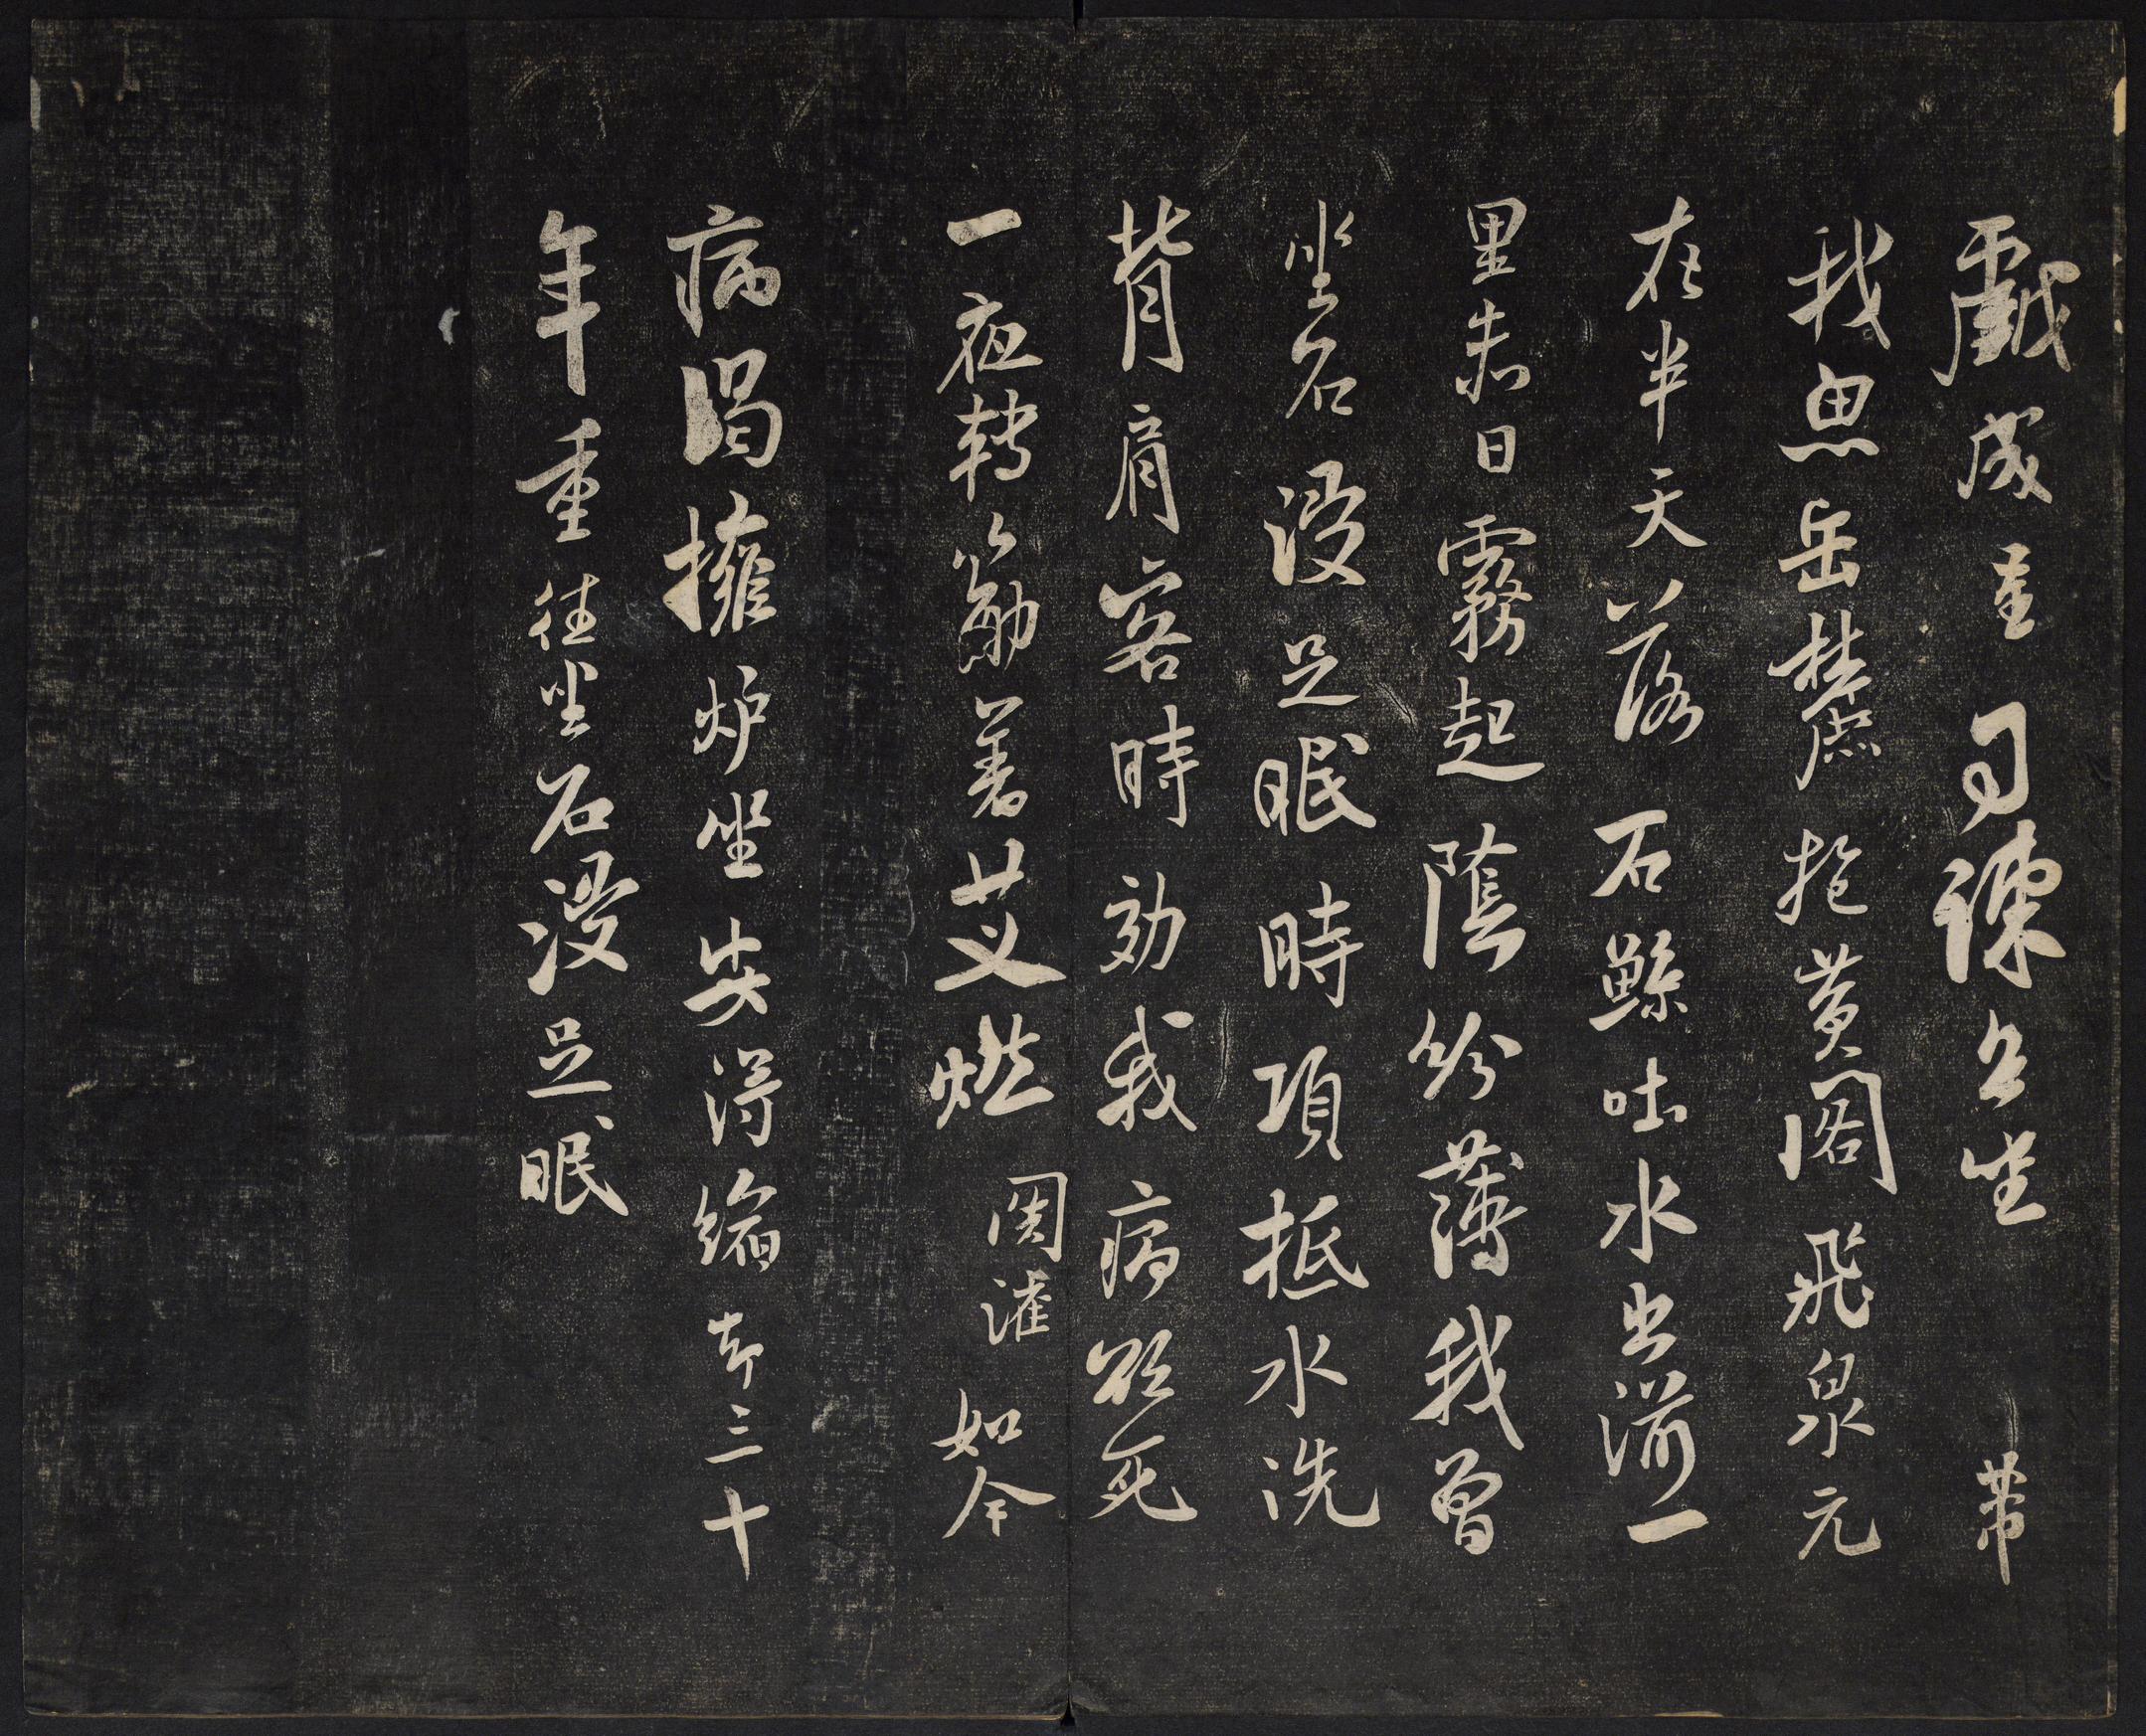 戲成呈司諫台坐 芾
我思岳麓抱黃閣飛泉元
在半天落石鯨吐水出湔一
里赤日霧起陰紛薄我曾
坐石浸足眠時項抵水洗
背肩客時効我病欲死
一夜轉筋著艾燃關灌如今
病渴擁炉坐安得縮却三十
年重往坐石浸足眠